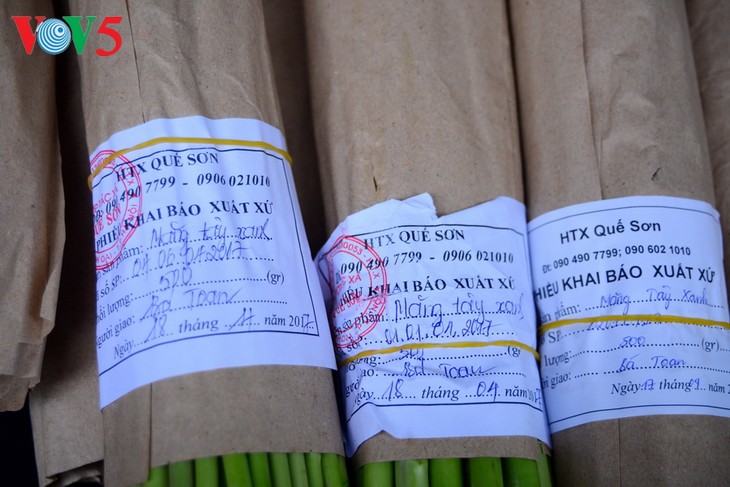 VOV5
HTX QUẾ SƠN
090 490 7799 - 0906 021010
PHIẾU KHAI BÁO XUẤT XỨ
sản phẩm: Măng tây xanh
số SP: 04.06.04.2017
lượng: 500 (gr)
Người giao: Bá Toan
Ngày 18 tháng 2017
HTX QUẾ SƠN
090 490 7799 - 0906 021010
PHIẾU KHAI BÁO XUẤT XỨ
sản phẩm: Măng tây xanh
01.01.04.2017
500 (gr)
giao: Bá Toan
Ngày 18 tháng 04 năm 2017
HTX Quế Sơn
Đt: 090 490 7799; 090 602 1010
HIẾU KHAI BÁO XUẤT XỨ
phẩm: Măng Tây Xanh
SP
lượng: 500 (gr)
giao: Bá Toan
Ngày 17 tháng